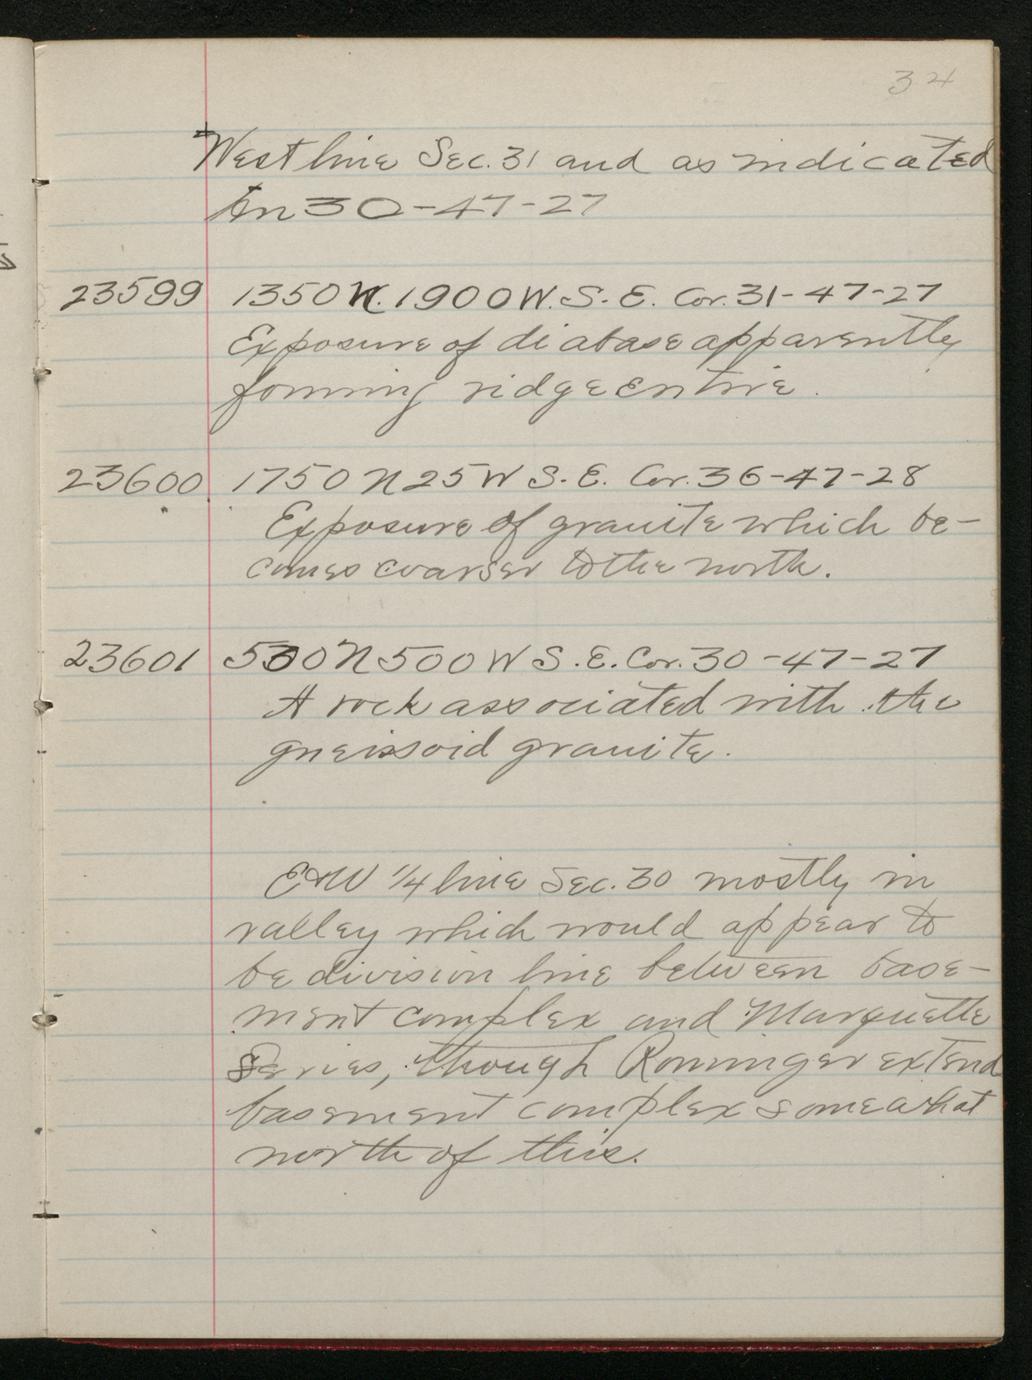 34
West line Sec. 31 and as indicated
in 30-47-27
23599 1350 N. 1900 W. S. E. Cor. 31-47-27
Exposure of diabase apparently
forming ridge entire.
23600 1750 N 25 W S. E. Cor. 36-47-28
Exposure of granite which be-
comes coarser to the north.
23601 500 N 500 W S. E. Cor. 30-47-27
A rock associated with the
gneissoid granite.
E & W 1/4 line Sec. 30 mostly in
valley which would appear to
be division line between base-
ment complex and Marquette
Series, though Rominger extend
basement complex somewhat
north of this.